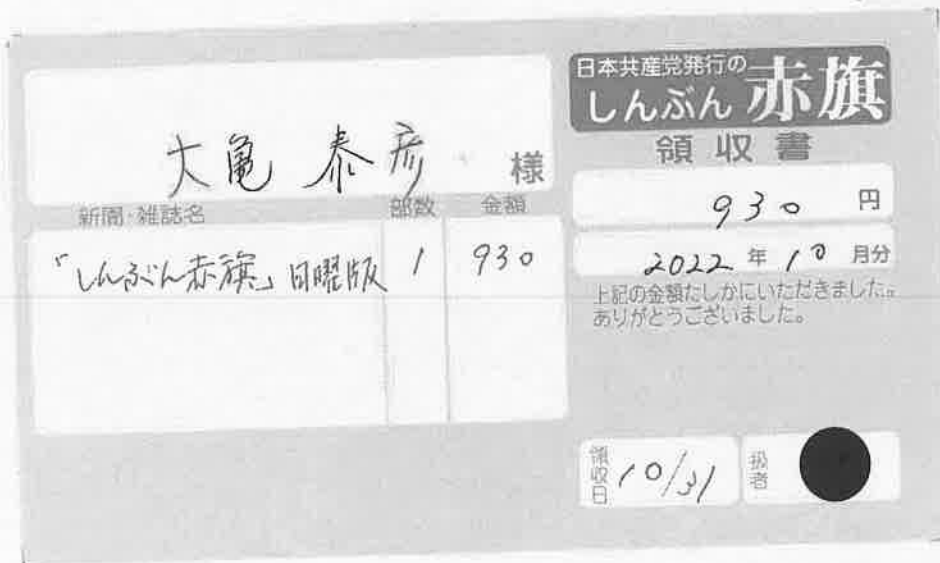 大亀 泰彦 様
新聞・雑誌名 部数 金額
「しんぶん赤旗」日曜版 1 930
日本共産党発行の
しんぶん 赤旗
領収書
930 円
2022 年 10 月分
上記の金額たしかにいただきました。
ありがとうございました。
領収日 10/31 扱者